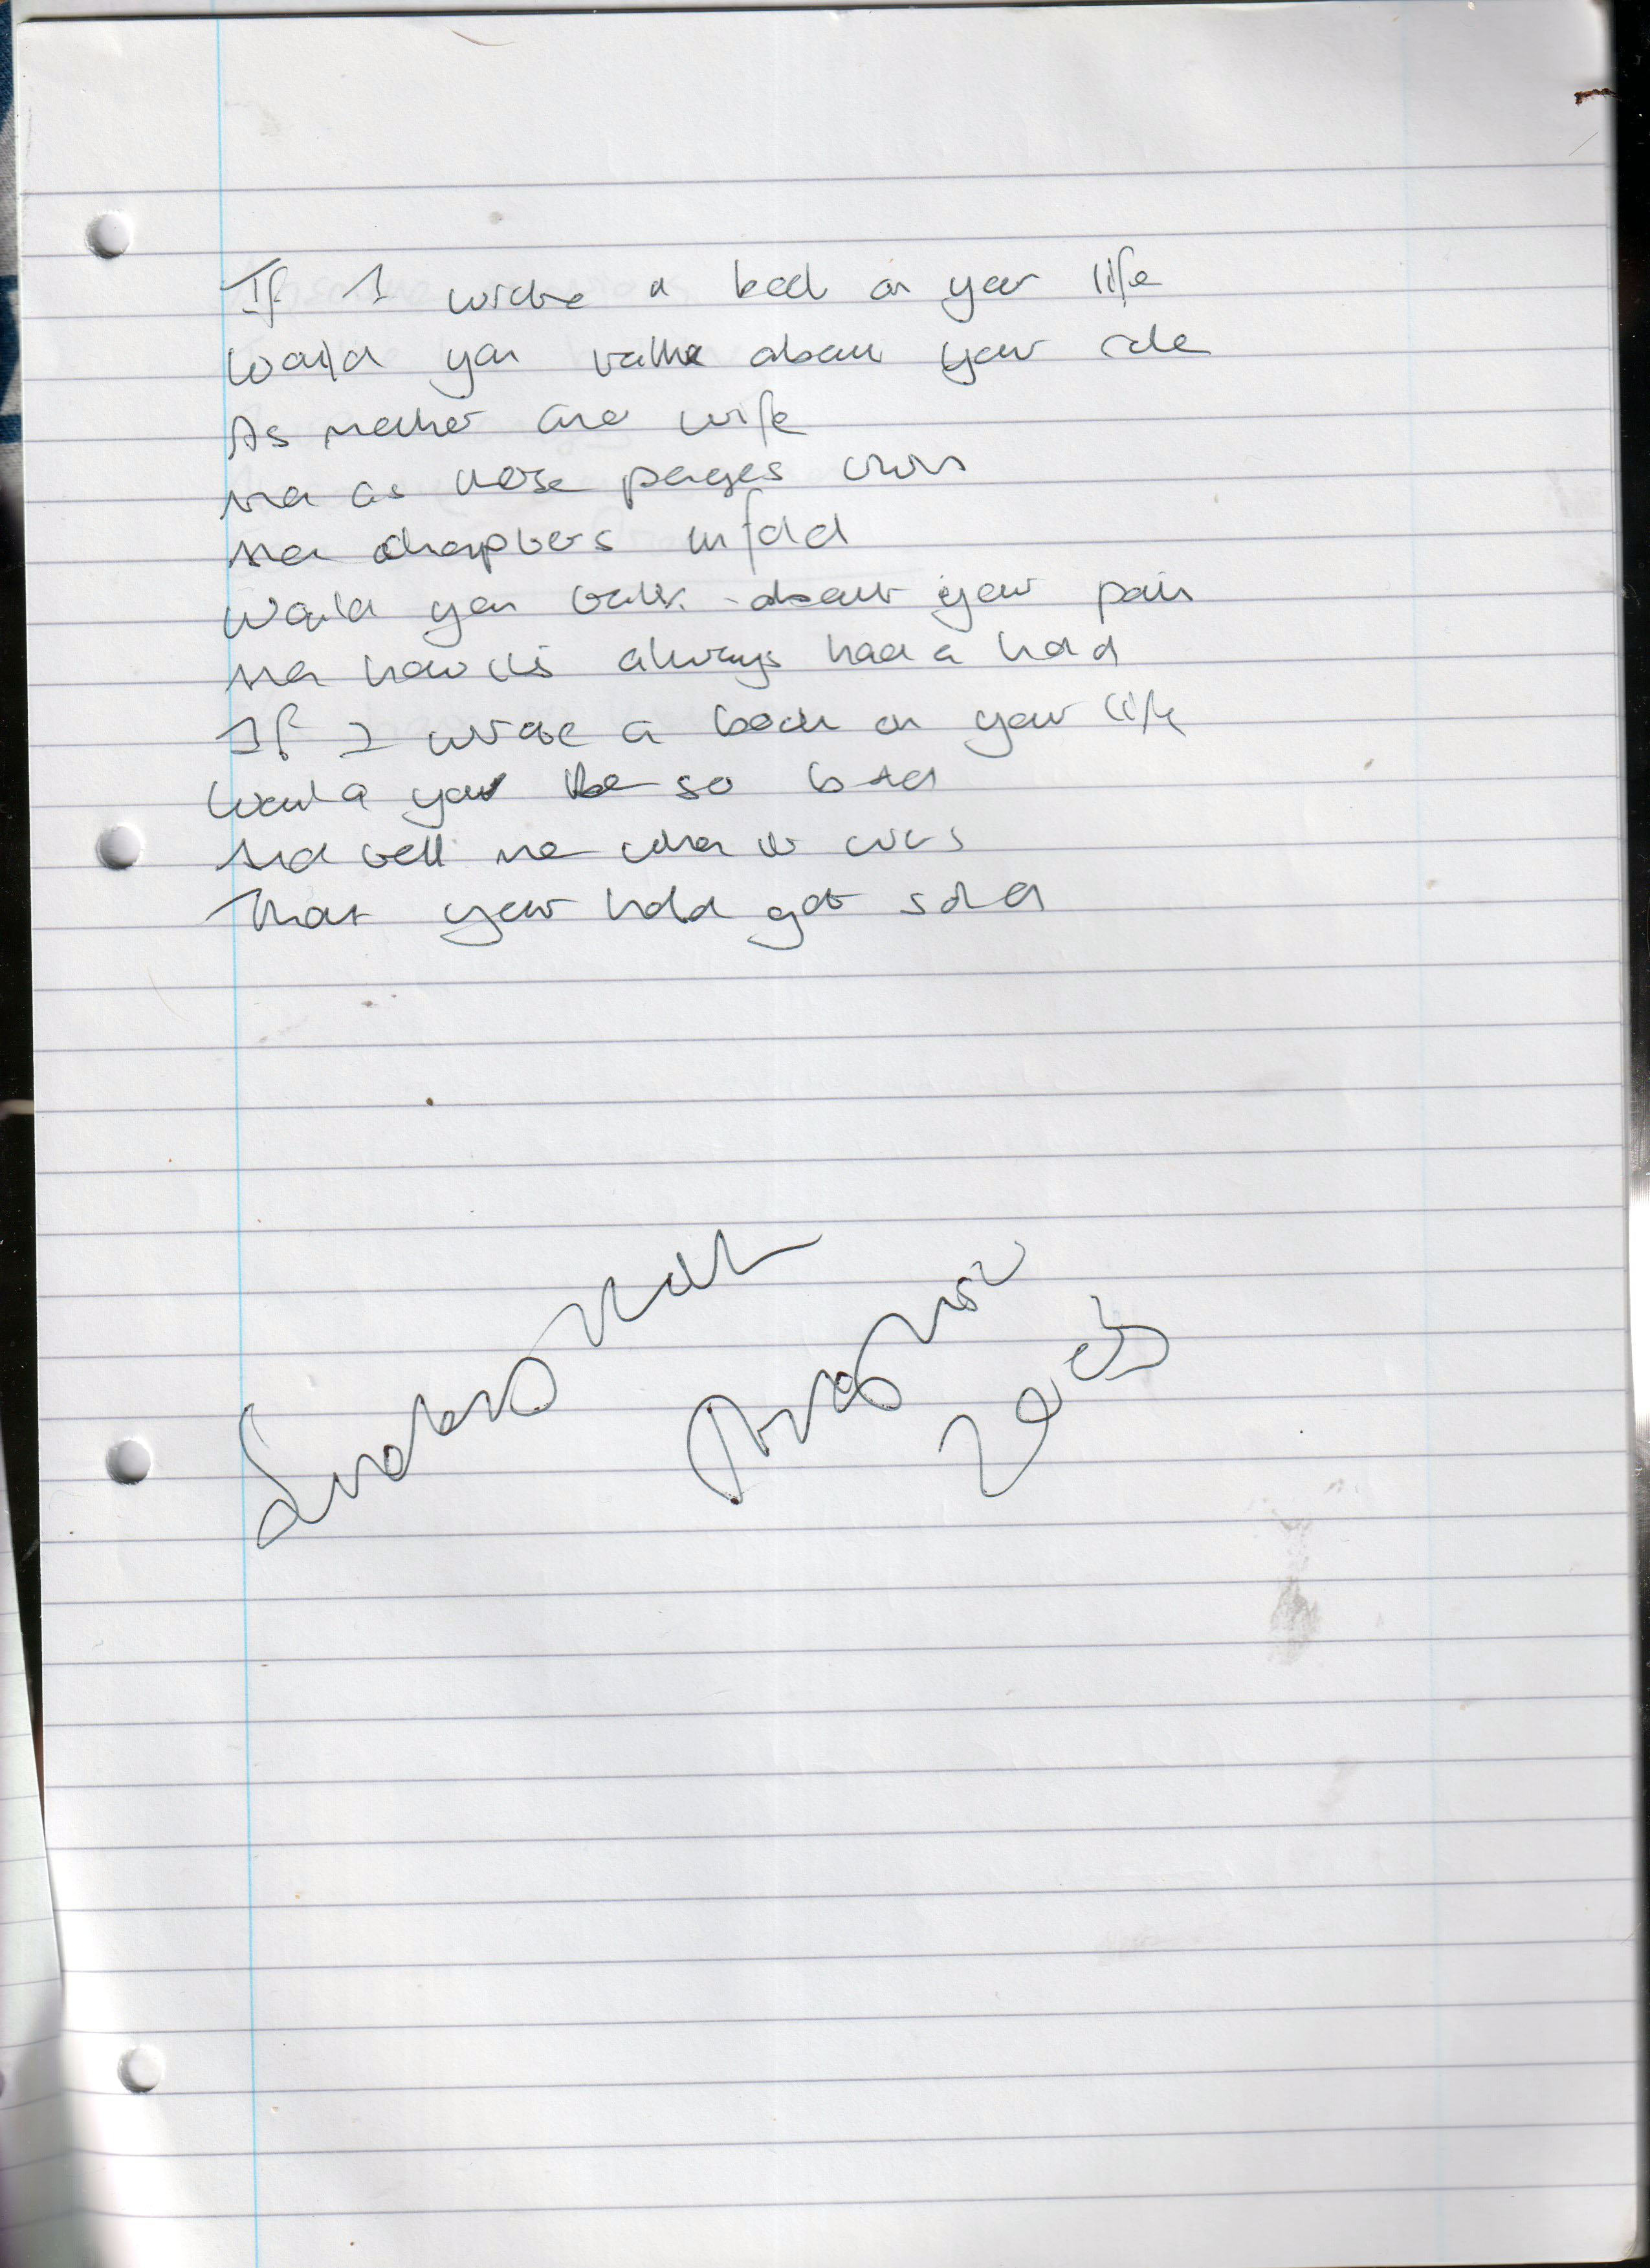 If I wrote a book on your life
Would you talk about your role
As mother and wife
And as those pages turn
And chapters unfold
Would you talk about your pain
And how its always had a hold
If I wrote a book on your life
Would you be so bold
And tell me when it was
That your hold got sold